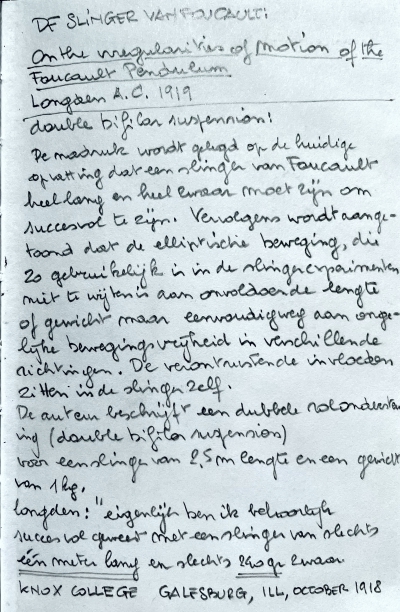 DE SLINGER VAN FOUCAULT:
On the irregularities of motion of the
Foucault Pendulum
Longden A.C. 1919
double bifilar suspension!
De nadruk wordt gelegd op de huidige
opvatting dat een slinger van Foucault
heel lang en heel zwaar moet zijn om
succesvol te zijn. Vervolgens wordt aange-
toond dat de elliptische beweging, die
zo gebruikelijk is in de slingerexperimenten
niet te wijten is aan onvoldoende lengte
of gewicht maar eenvoudigweg aan onge-
lijke bewegingsvrijheid in verschillende
richtingen. De verontrustende invloeden
zitten in de slinger zelf.
De auteur beschrijft een dubbele
ing (double bifilar suspension)
voor een slinger van 2,5m lengte en een gewicht
van 1 kg.
Longden: "eigenlijk ben ik behoorlijk
succesvol geweest met een slinger van slechts
één meter lang en slechts zwaar.
KNOX COLLEGE GALESBURG, ILL, OCTOBER 1918